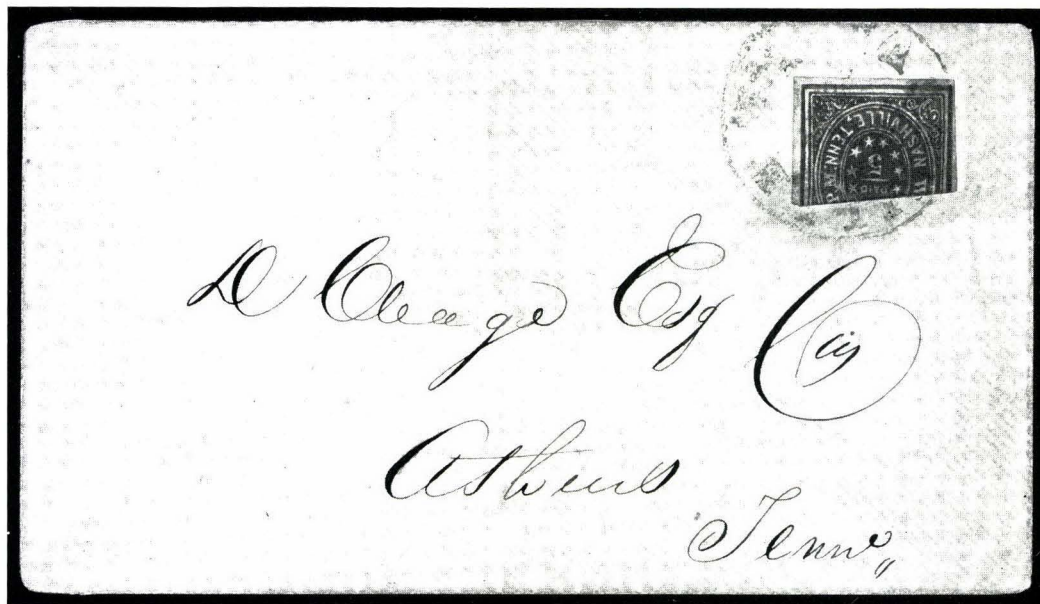 NASHVILLE, TENN.
PAID
5
D Cleage Esq Cas
Athens
Tenne